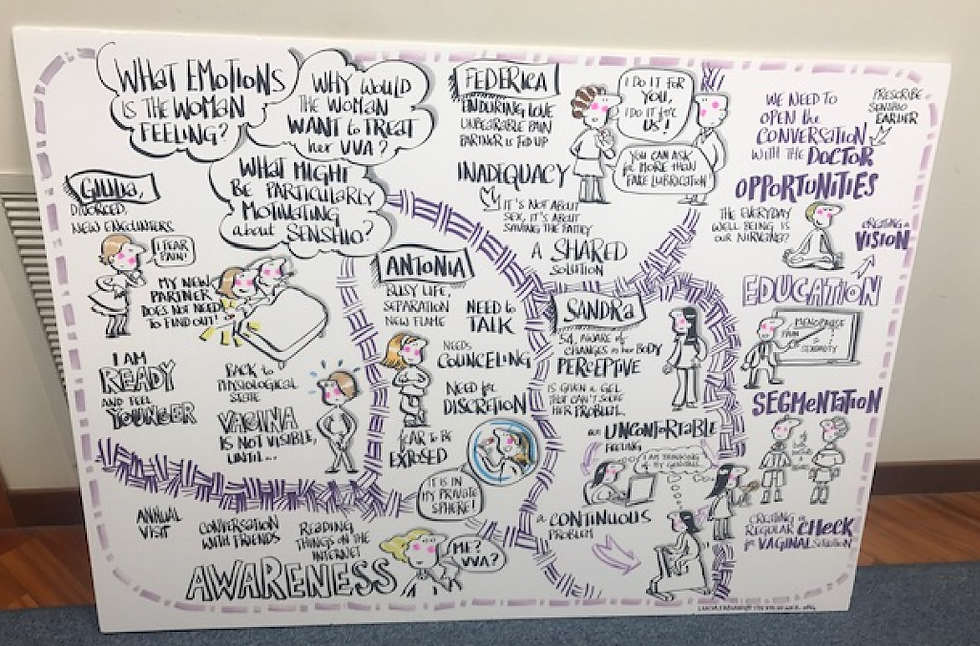 WHAT EMOTIONS
IS THE WOMAN
FEELING?
WHY WOULD
THE WOMAN
WANT to TREAT
her VVA?
WHAT MIGHT
BE PARTICULARLY
MOTIVATING
about SENSHIO?
GIULIA,
DIVORCED,
NEW ENCOUNTERS
I FEAR
PAIN!
MY NEW
PARTNER
DOES NOT NEED
TO FIND OUT!
I AM
READY
AND FEEL
YOUNGER
BACK to
PHYSIOLOGICAL
STATE
VAGINA
IS NOT VISIBLE,
UNTIL...
FEDERICA
ENDURING LOVE
UNBEARABLE PAIN
PARTNER IS FED UP
INADEQUACY
IT'S NOT ABOUT
SEX, IT'S ABOUT
SAVING THE FAMILY
A SHARED
SOLUTION
I DO IT FOR
YOU,
I DO IT for
US!
YOU CAN ASK
for MORE THAN
FAKE LUBRICATION
ANTONIA
BUSY LIFE,
SEPARATION
NEW FLAME
NEED to
TALK
NEEDS
COUNCELING
NEED for
DISCRETION
FEAR TO BE
EXPOSED
IT IS IN
MY PRIVATE
SPHERE!
SANDRA
54, AWARE of
CHANGES in her BODY
PERCEPTIVE
IS GIVEN a GEL
THAT CAN'T SOLVE
HER PROBLEM.
an UNCONFORTABLE
FEELING
I AM THINKING
of MY
a CONTINUOUS
PROBLEM
WE NEED TO
OPEN the
CONVERSATION
WITH THE DOCTOR
PRESCRIBE
SENSHIO
EARLIER
OPPORTUNITIES
THE EVERYDAY
WELL BEING IS
OUR NIRVANA?
CREATING a
VISION
EDUCATION
MENOPAUSE
PAIN
SEGMENTATION
CREATING a
REGULAR CHECK
for VAGINAL
ANNUAL
VISIT
CONVERSATION
WITH FRIENDS
READING
THINGS ON THE
INTERNET
AWARENESS
ME?
VVA?